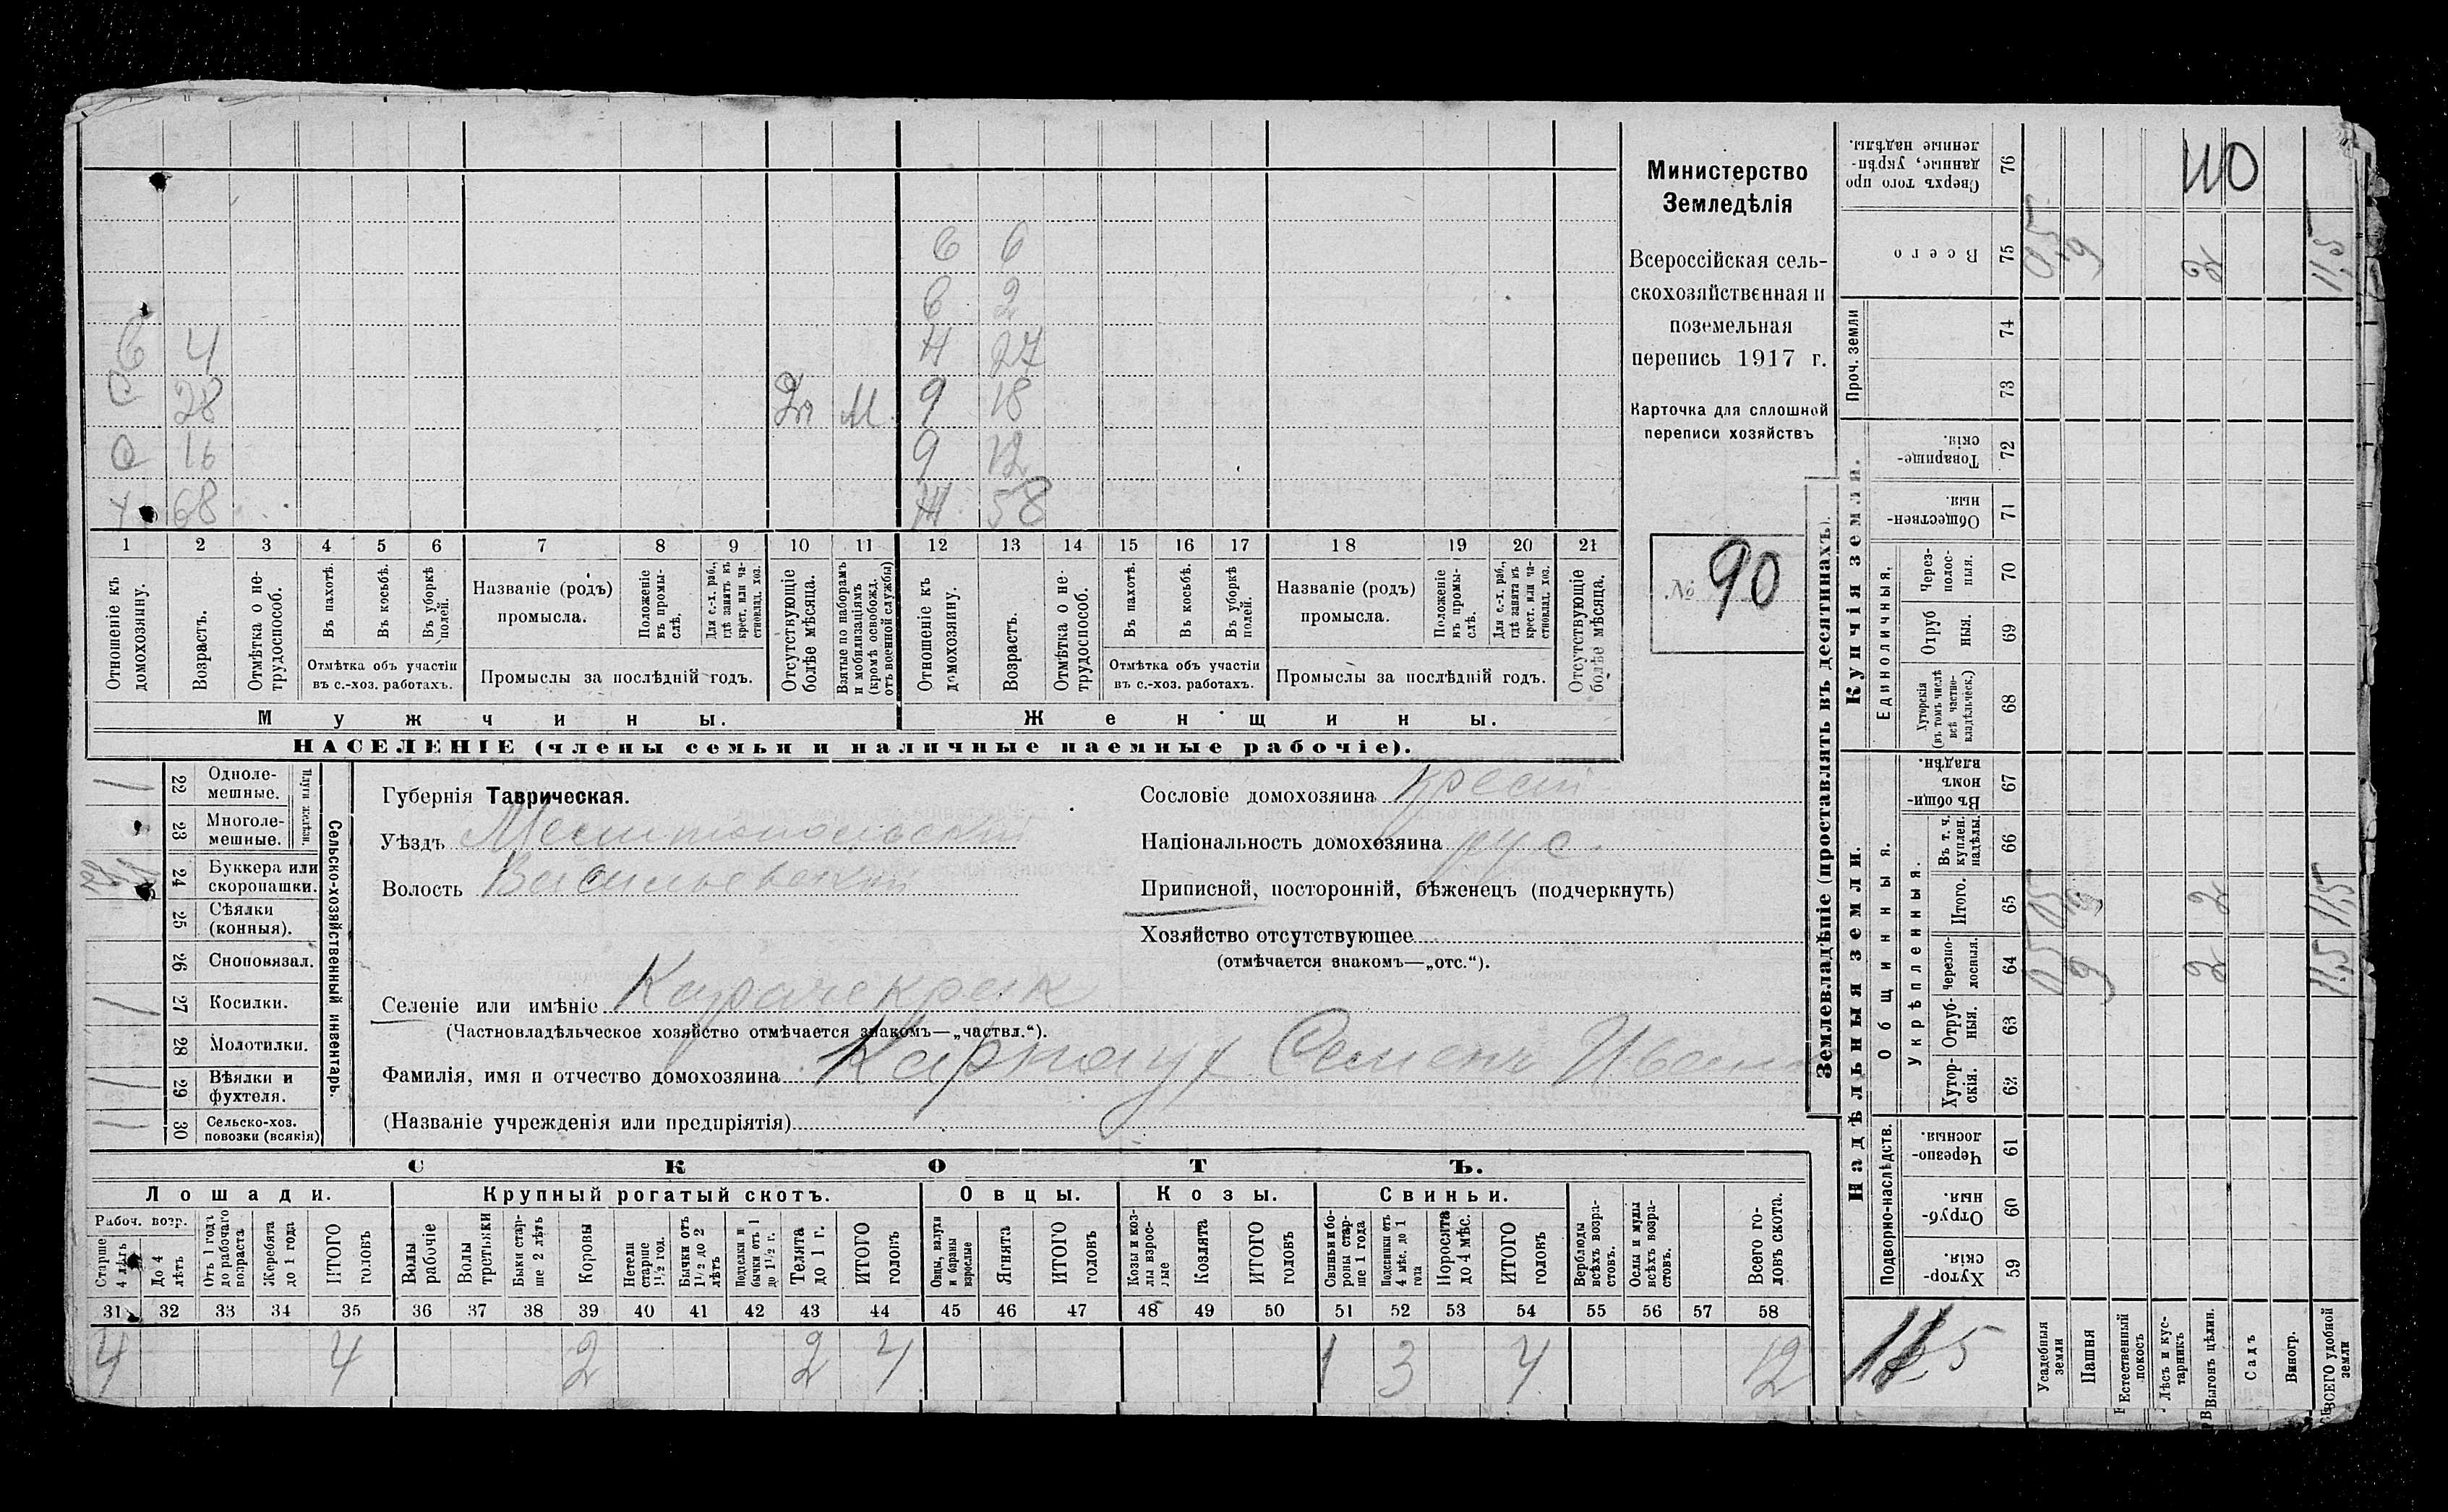 Министерство
Земледѣлія
Всероссійская сель-
скохозяйственная и
поземельная
перепись 1917 г.
Карточка для сплошной
переписи хозяйствъ
№ 90
6 6
6 2
6 4 Н 27
С 28 М 9 18
16 9 12
68 Ж 58
1 2 3 4 5 6 7 8 9 10 11 12 13 14 15 16 17 18 19 20 21
Отношеніе къ домохозяину.
Возрастъ.
Отмѣтка о не-трудоспособ.
Въ пахотѣ.
Въ косьбѣ.
Въ уборкѣ полей.
Отмѣтка объ участіи
въ с.-хоз. работахъ.
Названіе (родъ)
промысла.
Положеніе въ промы-слѣ.
Для с.-х. раб., гдѣ занятъ въ крест. или ча-стновлад. хоз.
Промыслы за послѣдній годъ.
Отсутствующіе болѣе мѣсяца.
Взятые по наборамъ и мобилизаціямъ (кромѣ освобожд. отъ военной службы)
Отношеніе къ домохозяину.
Возрастъ.
Отмѣтка о не-трудоспособ.
Въ пахотѣ.
Въ косьбѣ.
Въ уборкѣ полей.
Отмѣтка объ участіи
въ с.-хоз. работахъ.
Названіе (родъ)
промысла.
Положеніе въ промы-слѣ.
Для с.-х. раб., гдѣ занята въ крест. или ча-стновлад. хоз.
Промыслы за послѣдній годъ.
Отсутствующіе болѣе мѣсяца.
Мужчины.
Женщины.
НАСЕЛЕНІЕ (члены семьи и наличные наемные рабочіе).
Сельско-хозяйственный инвентарь.
Плуги желѣзн.
1 22 Одноле-мешные.
23 Многоле-мешные.
24 Буккера или скоропашки.
25 Сѣялки (конныя).
26 Сноповязал.
1 27 Косилки.
28 Молотилки.
1 29 Вѣялки и фухтеля.
1 30 Сельско-хоз. повозки (всякія)
Губернія Таврическая.
Уѣздъ Мелитопольскій
Волость Васильевская
Селеніе или имѣніе Карачекрак
(Частновладѣльческое хозяйство отмѣчается знакомъ—„частвл.“).
Фамилія, имя и отчество домохозяина Карнаух Семенъ Иван
(Названіе учрежденія или предпріятія)
Сословіе домохозяина крест
Національность домохозяина рус.
Приписной, посторонній, бѣженецъ (подчеркнуть)
Хозяйство отсутствующее
(отмѣчается знакомъ—„отс.“).
СКОТЪ.
Лошади.
Крупный рогатый скотъ.
Овцы.
Козы.
Свиньи.
Рабоч. возр.
Старше 4 лѣтъ
До 4 лѣтъ
Отъ 1 года до рабочаго возраста
Жеребята до 1 года
ИТОГО головъ
Волы рабочіе
Волы третьяки
Быки стар-ше 2 лѣтъ
Коровы
Нетели старше 1½ год.
Бычки отъ 1½ до 2 лѣтъ
Подтелки и бычки отъ 1 до 1½ г.
Телята до 1 г.
ИТОГО головъ
Овцы, валухи и бараны взрослые
Ягнята
ИТОГО головъ
Козы и коз-лы взрос-лые
Козлята
ИТОГО головъ
Свиньи и бо-ровы стар-ше 1 года
Подсвинки отъ 4 мѣс. до 1 года
Поросята до 4 мѣс.
ИТОГО головъ
Верблюды всѣхъ возра-стовъ.
Ослы и мулы всѣхъ возра-стовъ.
Всего го-ловъ скота.
31 32 33 34 35 36 37 38 39 40 41 42 43 44 45 46 47 48 49 50 51 52 53 54 55 56 57 58
4 4 2 2 4 1 3 4 12
Землевладѣніе (проставлять въ десятинахъ).
Купчія земли.
Надѣльныя земли.
Сверхъ того про-данные, укрѣп-ленные надѣлы. 76 110
Всего 75 0,5 9 2 11,5
Проч. земли 74
73
Товарище-скія. 72
Обществен-ныя. 71
Единоличныя.
Через-полос-ныя. 70
Отруб-ныя. 69
Хуторскія (въ томъ числѣ всѣ частно-владѣльческ.) 68
Общинныя.
Въ общин-номъ владѣн. 67
Укрѣпленныя.
Въ т. ч. куплен. надѣлы. 66
Итого. 65 0,5 9 2 11,5
Черезпо-лосныя. 64 0,5 9 2 11,5
Отруб-ныя. 63
Хутор-скія. 62
Подворно-наслѣдств.
Черезпо-лосныя. 61
Отруб-ныя. 60
Хутор-скія. 59
Усадебныя земли
Пашня
Естественный покосъ
Лѣсъ и кус-тарникъ
Выгонъ цѣлин.
Садъ
Виногр.
ВСЕГО удобной земли